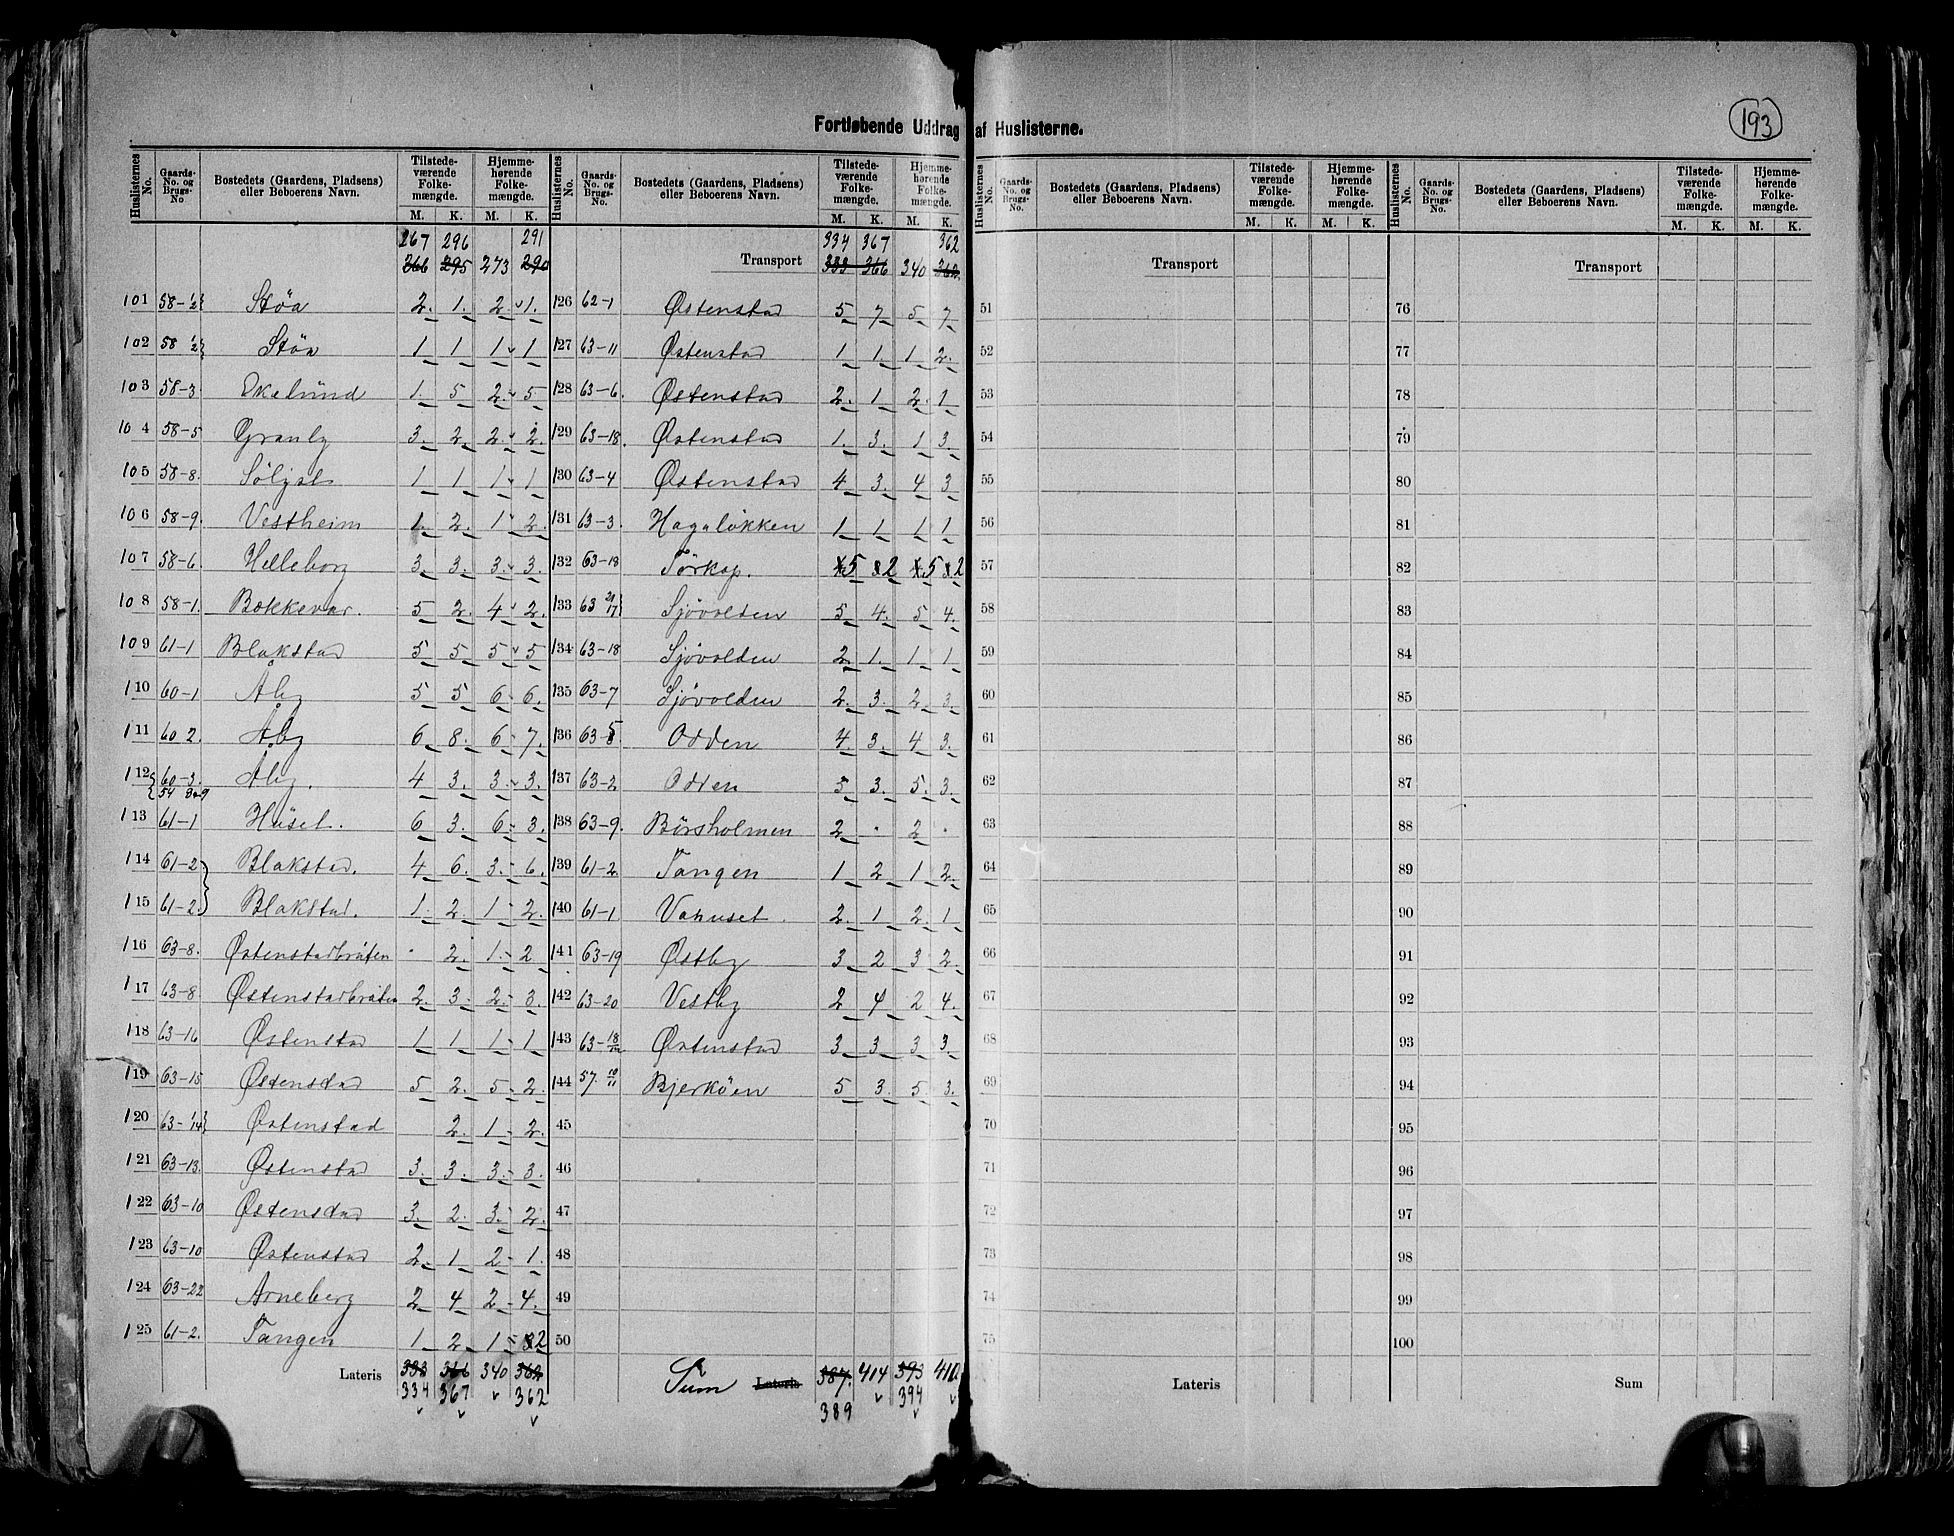 193
Fortløbende Uddrag af Huslisterne.
Huslisternes No. | Gaards-No. og Brugs-No | Bostedets (Gaardens, Pladsens) eller Beboerens Navn. | Tilstedeværende Folkemængde. M. K. | Hjemmehørende Folkemængde. M. K.
267 296 291
266 295 273 290
101 58-1/2 Stöa 2. 1. 2 1.
102 58 1/2 Stöa 1 1 1 1
103 58-3 Ekelund 1. 5 2. 5
104 58-5 Granly 3. 2. 2. 2.
105 58-8. Sölyst 1 1 1 1
106 58-9. Vestheim 1. 2. 1 2.
107 58-6 Helleborg 3. 3. 3. 3.
108 58-1. Bækkevar. 5 2. 4 2.
109 61-1 Blakstad 5 5 5 5
110 60-1 Åby 5 5 6 6.
111 60 2. Åby 6 8. 6 7.
112 60-3. Åby. 4 3. 3. 3.
54
113 61-1 Huset. 6 3. 6 3.
114 61-2 Blakstad. 4 6. 3. 6.
115 61-2. Blakstad. 1 2. 1 2.
116 63-8. Østenstadbråten · 2. 1. 2
117 63-8. Østenstadbråten 2. 3. 2. 3.
118 63-16 Østenstad 1 1 1 1
119 63-15 Østenstad 5 2. 5 2.
120 63-14 Østenstad 2. 1 2.
121 63-13. Østenstad 3. 3. 3. 3.
122 63-10 Østenstad 3. 2. 3. 2.
123 63-10 Østenstad 2. 1 2 1.
124 63-22 Arneberg 2 4 2 4.
125 61-2. Tangen 1 2 1 2
Lateris 333 366 340 362
334 367 362
Huslisternes No. | Gaards-No. og Brugs-No. | Bostedets (Gaardens, Pladsens) eller Beboerens Navn. | Tilstedeværende Folkemængde. M. K. | Hjemmehørende Folkemængde. M. K.
334 367 362
Transport 333 366 340
126 62-1 Østenstad 5 7 5 7
127 63-11 Østenstad 1 1. 1 2.
128 63-6. Østenstad 2. 1 2. 1
129 63-18. Østenstad 1. 3. 1 3.
130 63-4 Østenstad 4 3. 4 3
131 63-3. Hagaløkken 1 1 1 1
132 63-18 Törkop. 5 2 5 2
133 63 21/17 Sjövolden 5 4. 5 4.
134 63-18 Sjövolden 2 1. 1 1
135 63-7 Sjövolden 2. 3. 2. 3.
136 63-5 Odden 4. 3. 4 3.
137 63-2 Odden 5 3. 5. 3.
138 63-9. Börsholmen 2 · 2 ·
139 61-2. Tangen 1 2 1 2.
140 61-1 Vahuset. 2. 1 2. 1
141 63-19 Østby 3 2 3 2.
142 63-20 Vestby 2 4 2 4.
143 63-18 Østenstad 3 3 3 3.
144 57. 10/11 Bjerköen 5 3. 5 3.
45
46
47
48
49
50
Sum Lateris 387. 414 393 410
389 394
Huslisternes No. | Gaards-No. og Brugs-No. | Bostedets (Gaardens, Pladsens) eller Beboerens Navn. | Tilstedeværende Folkemængde. M. K. | Hjemmehørende Folkemængde. M. K.
Transport
51
52
53
54
55
56
57
58
59
60
61
62
63
64
65
66
67
68
69
70
71
72
73
74
75
Lateris
Huslisternes No. | Gaards-No. og Brugs-No. | Bostedets (Gaardens, Pladsens) eller Beboerens Navn. | Tilstedeværende Folkemængde. M. K. | Hjemmehørende Folkemængde. M. K.
Transport
76
77
78
79
80
81
82
83
84
85
86
87
88
89
90
91
92
93
94
95
96
97
98
99
100
Sum